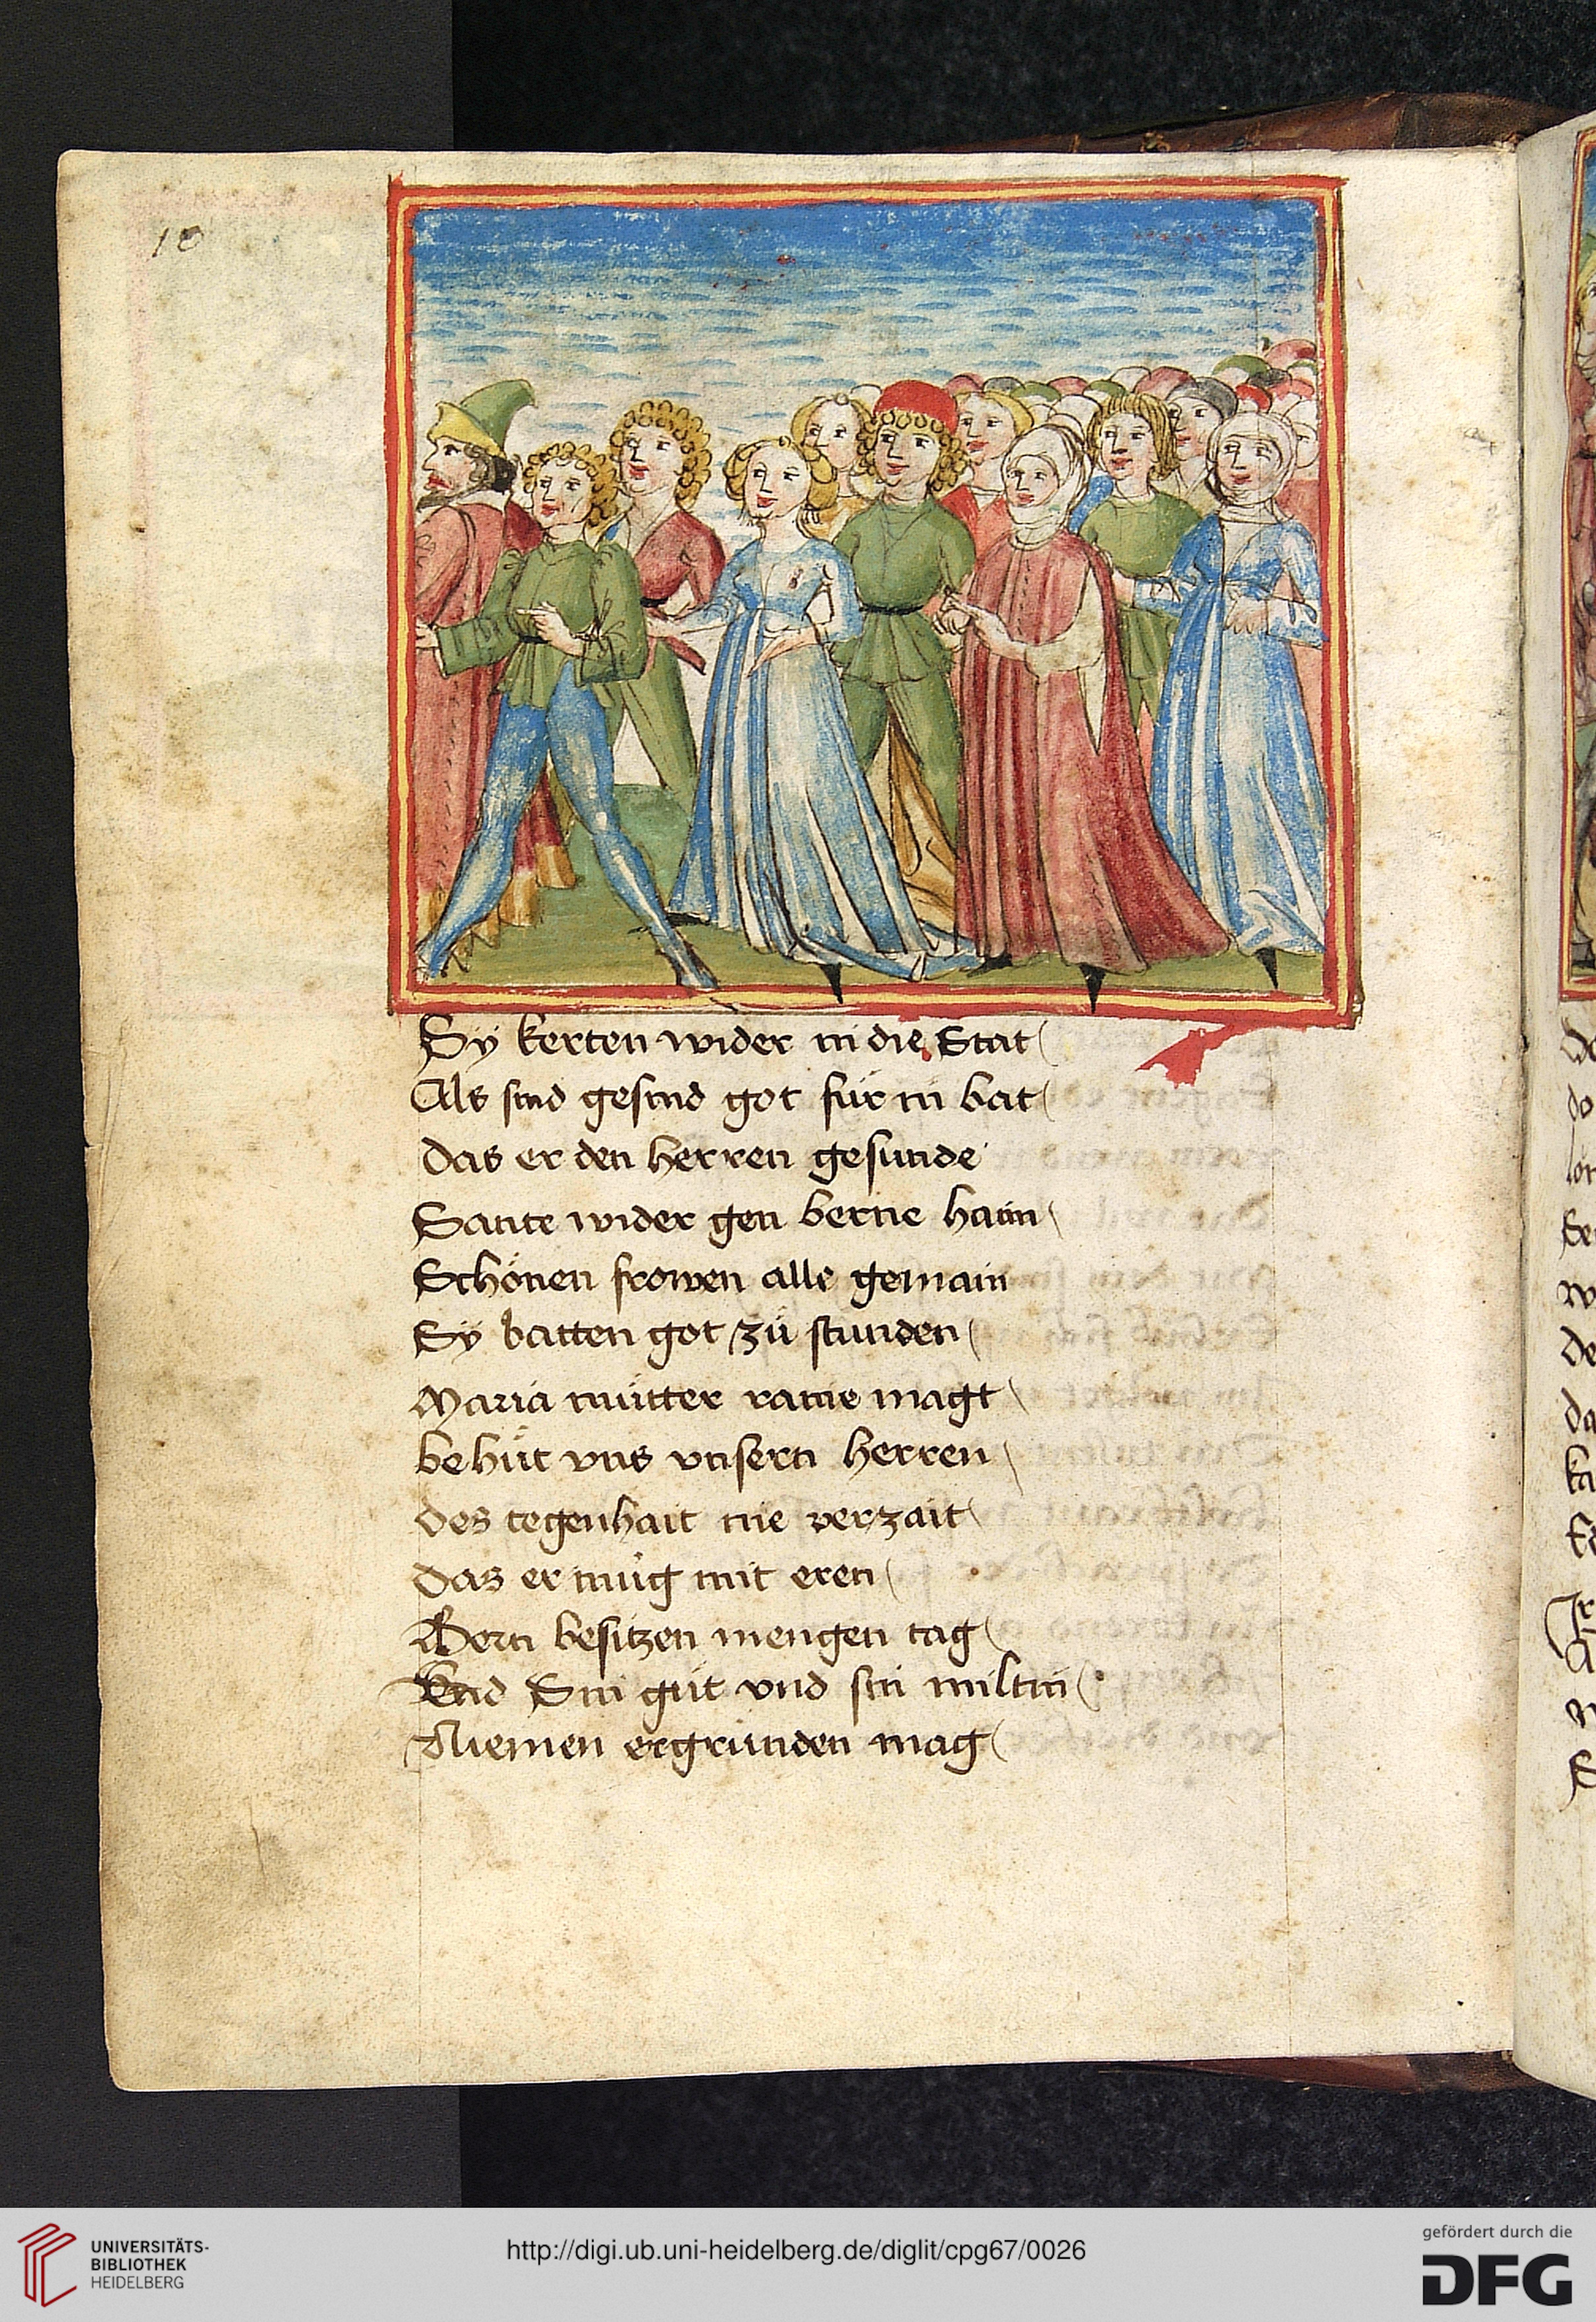 10
Sÿ kerten wider in die Stat
Als sind gesind got für in bat
Das er den herren gesunde
Sante wider gen berne haim
Schönen frowen alle gemain
Sÿ batten got zů stunden
Maria můtter raine magt
behůt vns vnsern herren
des tegenhait nie verzait
das er műg mit eren
Bern besitzen mengen tag
Vnd Sin gůt vnd sin miltin
Niemen ergrúnden mag
UNIVERSITÄTS-
BIBLIOTHEK
HEIDELBERG
http://digi.ub.uni-heidelberg.de/diglit/cpg67/0026
gefördert durch die
DFG